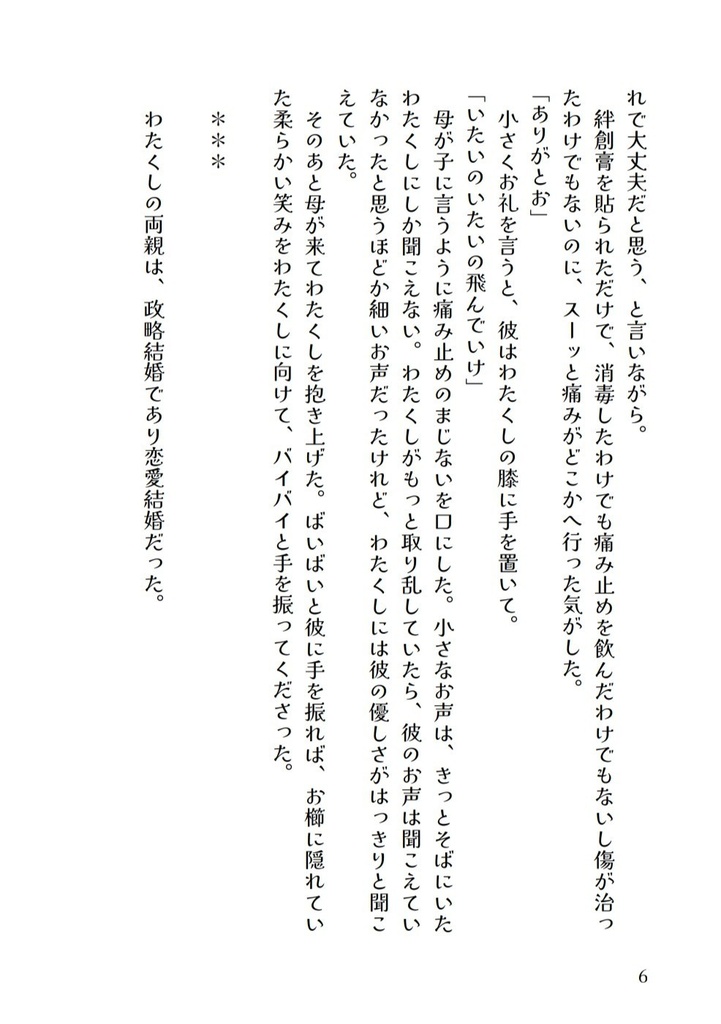 れで大丈夫だと思う、と言いながら。
絆創膏を貼られただけで、消毒したわけでも痛み止めを飲んだわけでもないし傷が治っ
たわけでもないのに、スーッと痛みがどこかへ行った気がした。
「ありがとお」
小さくお礼を言うと、彼はわたくしの膝に手を置いて。
「いたいのいたいの飛んでいけ」
母が子に言うように痛み止めのまじないを口にした。小さなお声は、きっとそばにいた
わたくしにしか聞こえない。わたくしがもっと取り乱していたら、彼のお声は聞こえてい
なかったと思うほどか細いお声だったけれど、わたくしには彼の優しさがはっきりと聞こ
えていた。
そのあと母が来てわたくしを抱き上げた。ばいばいと彼に手を振れば、お櫛に隠れてい
た柔らかい笑みをわたくしに向けて、バイバイと手を振ってくださった。
＊＊＊
わたくしの両親は、政略結婚であり恋愛結婚だった。
6